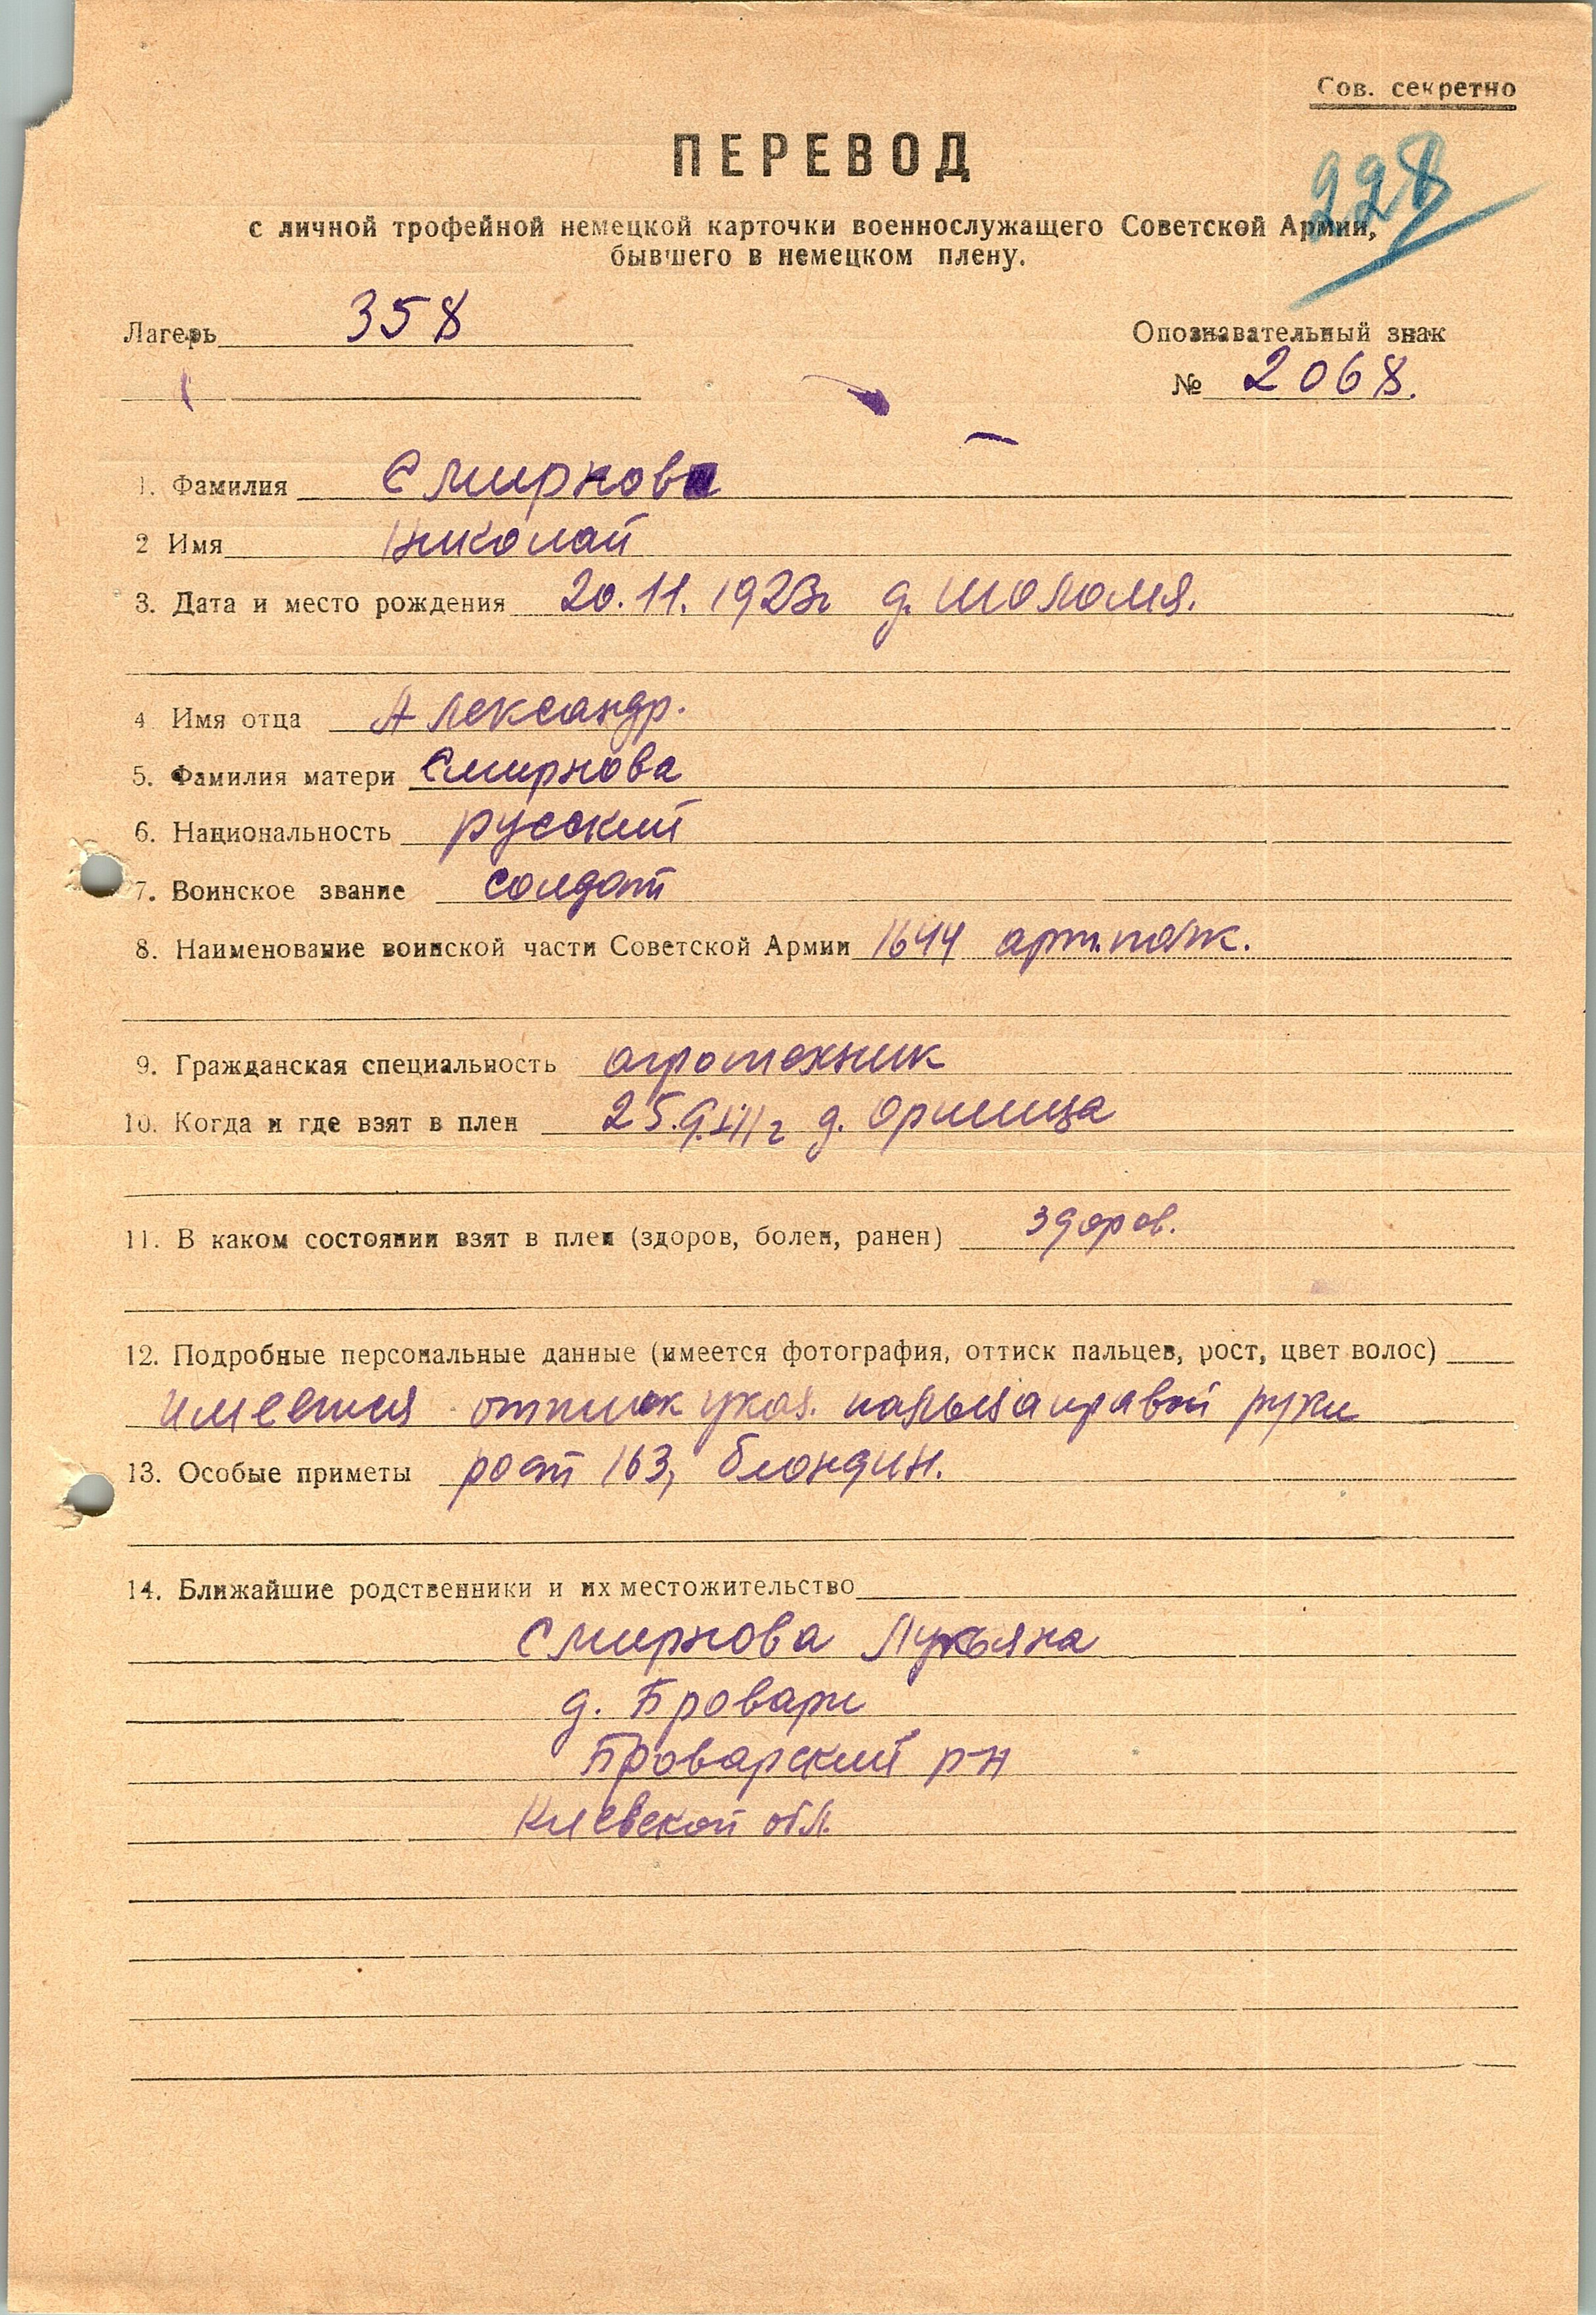 Сов. секретно
ПЕРЕВОД
228
с личной трофейной немецкой карточки военнослужащего Советской Армии,
бывшего в немецком плену.
Лагерь 358
Опознавательный знак
№ 2068.
1. Фамилия Смирнов
2 Имя Николай
3. Дата и место рождения 20.11.1923г д. Шоломя.
4 Имя отца Александр.
5. Фамилия матери Смирнова
6. Национальность русский
7. Воинское звание солдат
8. Наименование воинской части Советской Армии 1644 арт.полк.
9. Гражданская специальность агротехник
10. Когда и где взят в плен 25.9. г д. Оршица
11. В каком состоянии взят в плен (здоров, болен, ранен) здоров.
12. Подробные персональные данные (имеется фотография, оттиск пальцев, рост, цвет волос)
имеется оттиск указ. пальца правой руки
13. Особые приметы рост 163, блондин.
14. Ближайшие родственники и их местожительство
Смирнова Лукьяна
д. Бровари
Броварский р-н
Киевской обл.